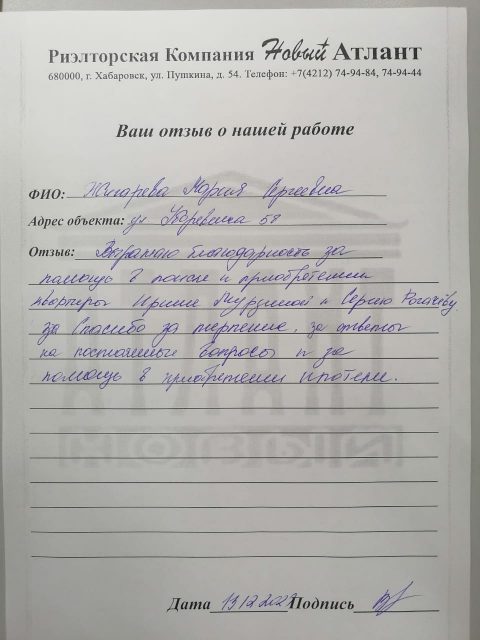 Риэлторская Компания Новый Атлант
680000, г. Хабаровск, ул. Пушкина, д. 54. Телефон: +7(4212) 74-94-84, 74-94-44
Ваш отзыв о нашей работе
ФИО: Жигарева Мария Сергеевна
Адрес объекта: ул 58
Отзыв: Выражаю благодарность за
помощь в поиске и приобретении
квартиры Ирине Мурзиной и Сергею Рогачёву.
Спасибо за терпение, за ответы
на постоянные вопросы и за
помощь в приобретении ипотеки.
Дата 19.12.202 Подпись